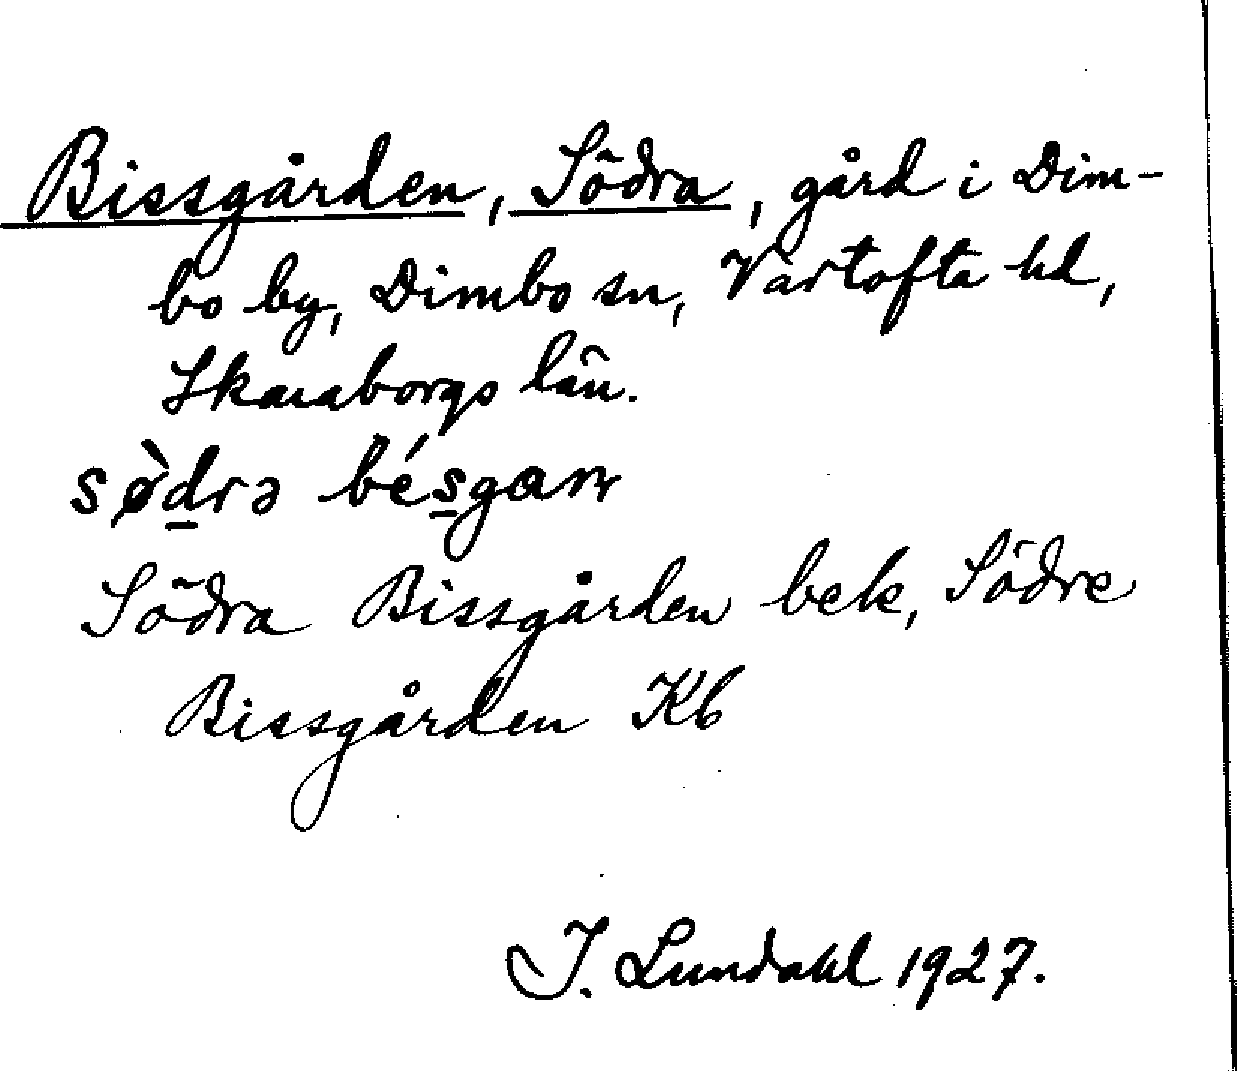 Bissgården, Södra, gård i Dim-
bo by, Dimbo sn, Vartofta hd,
Skaraborgs län.
sø̀d̲rə bés̲gan
Södra Bissgården bek, Södre
Bissgården Kb
I. Lundahl 1927.